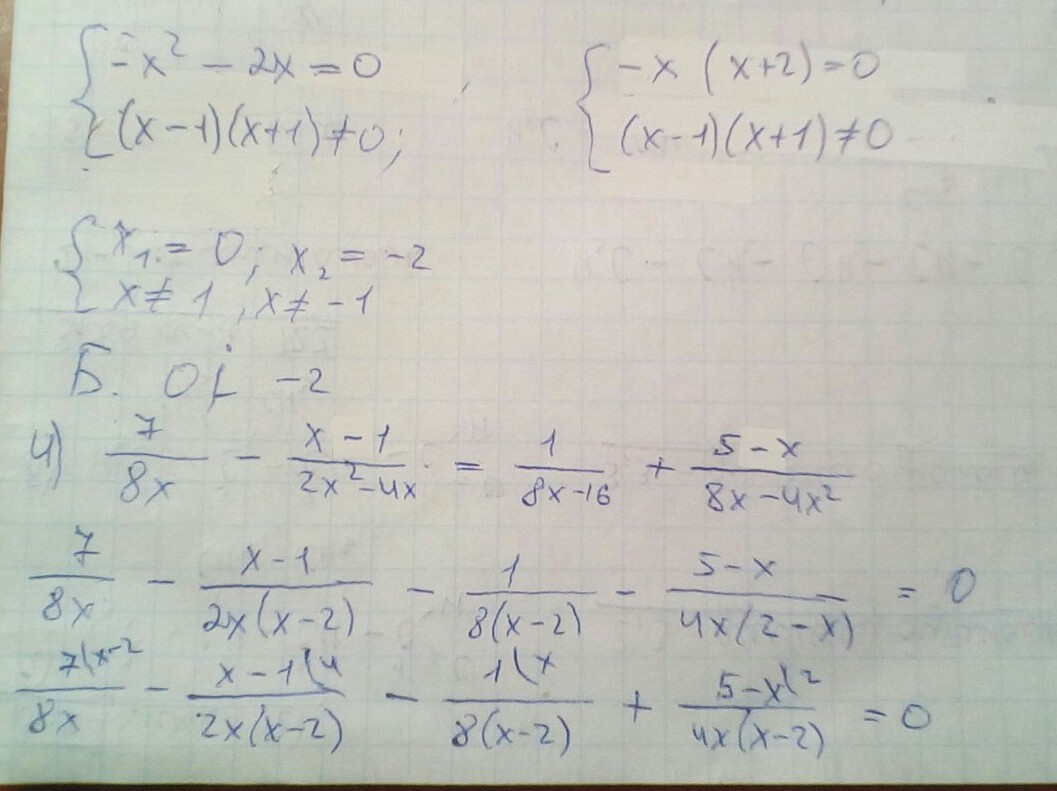 { -x² - 2x = 0 , { -x (x+2) = 0
{ (x-1)(x+1) ≠ 0; { (x-1)(x+1) ≠ 0
{ x₁ = 0; x₂ = -2
{ x ≠ 1, x ≠ -1
Б. 0; -2
4) 7/(8x) - (x-1)/(2x²-4x) = 1/(8x-16) + (5-x)/(8x-4x²)
7/(8x) - (x-1)/(2x(x-2)) - 1/(8(x-2)) - (5-x)/(4x(2-x)) = 0
7\x-2/(8x) - x-1\4/(2x(x-2)) - 1\x/(8(x-2)) + 5-x\2/(4x(x-2)) = 0